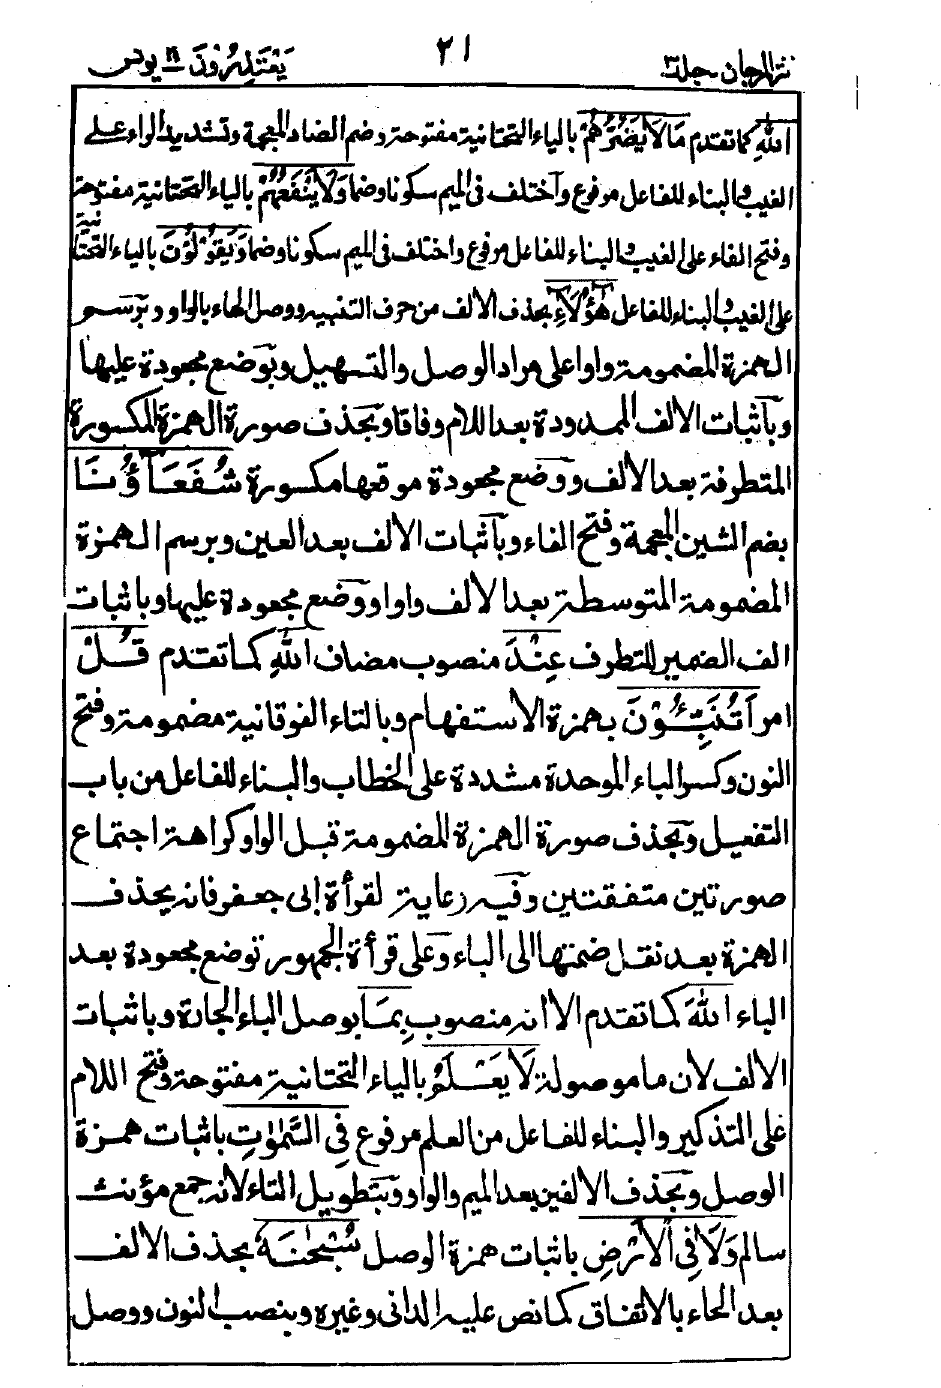 نثر المرجان جلد ٣ ٢١ يَعْتَذِرُوْنَ ١١ يونس
اللهِ كما تقدم مَا لَا يَضُرُّهُمْ بالياء التحتانية مفتوحة وضم الضاد المعجمة وتشديد الراء على
الغيب والبناء للفاعل مرفوع واختلف فى الميم سكونا وضما وَلَا يَنْفَعُهُمْ بالياء التحتانية مفتوحة
وفتح الفاء على الغيب والبناء للفاعل مرفوع واختلف فى الميم سكونا وضما وَيَقُوْلُوْنَ بالياء التحتانية
على الغيب والبناء للفاعل هٰؤُلَاءِ بحذف الالف من حرف التنبيه ووصل الهاء بالواو وبرسم
الهمزة المضمومة واوا على مراد الوصل والتسهيل وبوضع مجعودة عليها
وباثبات الالف الممدودة بعد اللام وفاقا وبحذف صورة الهمزة المكسورة
المتطرفة بعد الالف ووضع مجعودة موقعها مكسورة شُفَعَاۤؤُنَا
بضم الشين المعجمة وفتح الفاء وباثبات الالف بعد العين وبرسم الهمزة
المضمومة المتوسطة بعد الالف واوا ووضع مجعودة عليها وباثبات
الف الضمير للتطرف عِنْدَ منصوب مضاف اللهِ كما تقدم قُلْ
امر اَتُنَبِّـُٔوْنَ بهمزة الاستفهام وبالتاء الفوقانية مضمومة وفتح
النون وكسر الباء الموحدة مشددة على الخطاب والبناء للفاعل من باب
التفعيل وبحذف صورة الهمزة المضمومة قبل الواو كراهة اجتماع
صورتين متفقتين وفيه رعاية لقرأة ابى جعفر فانه يحذف
الهمزة بعد نقل ضمتها الى الباء وعلى قرأة الجمهور توضع مجعودة بعد
الباء اللهَ كما تقدم الا انه منصوب بِمَا بوصل الباء الجارة وباثبات
الالف لان ما موصولة لَا يَعْلَمُ بالياء التحتانية مفتوحة وفتح اللام
على التذكير والبناء للفاعل من العلم مرفوع فِى السَّمٰوٰتِ باثبات همزة
الوصل وبحذف الالفين بعد الميم والواو وبتطويل التاء لانه جمع مؤنث
سالم وَلَا فِى الْاَرْضِ باثبات همزة الوصل سُبْحٰنَهٗ بحذف الالف
بعد الحاء بالاتفاق كما نص عليه الدانى وغيره وبنصب النون ووصل